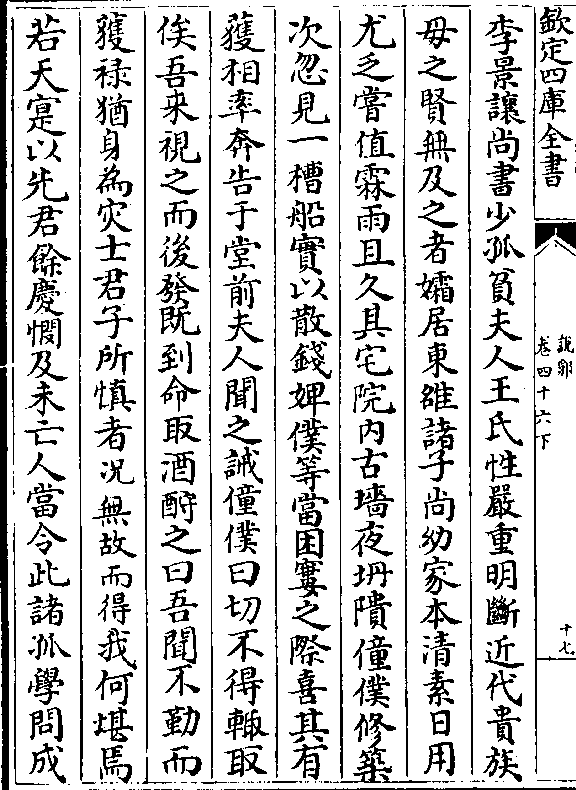 欽定四庫全書
說郛
卷四十六下
十七
李景讓尚書少孤貧夫人王氏性嚴重明斷近代貴族
母之賢無及之者孀居東雒諸子尚幼家本清素日用
尤乏嘗值霖雨且久其宅院内古墻夜坍隤僮僕修築
次忽見一槽船實以散錢婢僕等當困窶之際喜其有
獲相率奔告于堂前夫人聞之誡僮僕曰切不得輙取
俟吾来視之而後發既到命取酒酹之曰吾聞不勤而
獲禄猶身為灾士君子所慎者况無故而得我何堪焉
若天寔以先君餘慶憫及未亡人當令此諸孤學問成